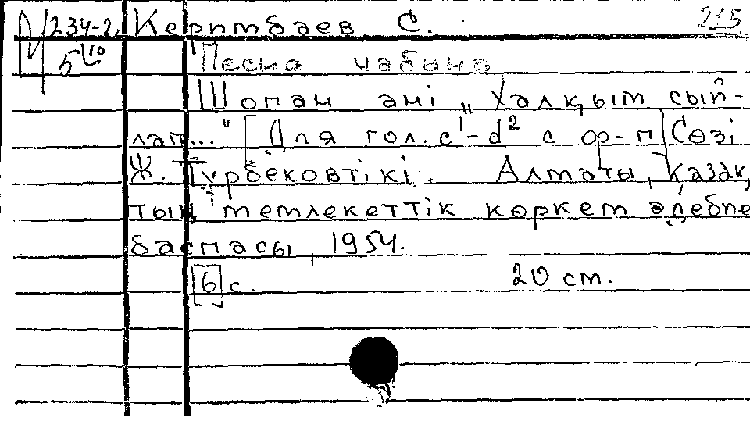 234-2 Керимбаев С. 215
5/10 Песня чабана
Шопан әні „Халқым сый-
лап..." [Для гол. c¹-d² с ф-п] Сөзі
Ж. Тұрбековтікі. Алматы, Қазақ
тың мемлекеттік көркем әдебие
баспасы, 1954.
[6] с. 20 см.